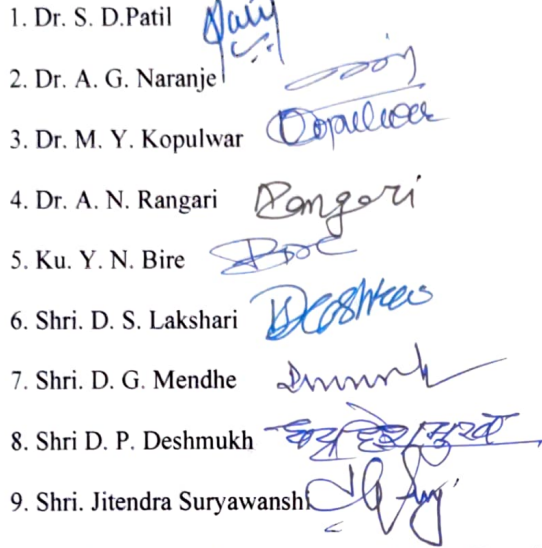 1. Dr. S. D.Patil
2. Dr. A. G. Naranje
3. Dr. M. Y. Kopulwar
4. Dr. A. N. Rangari Rangari
5. Ku. Y. N. Bire
6. Shri. D. S. Lakshari
7. Shri. D. G. Mendhe
8. Shri D. P. Deshmukh
9. Shri. Jitendra Suryawanshi